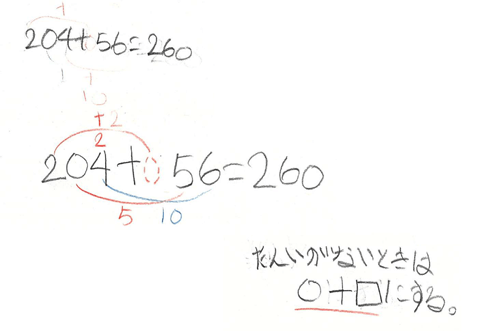 204+56=260
10
+2
2
204+0 56=260
5 10
たんいがないときは
0+□にする。